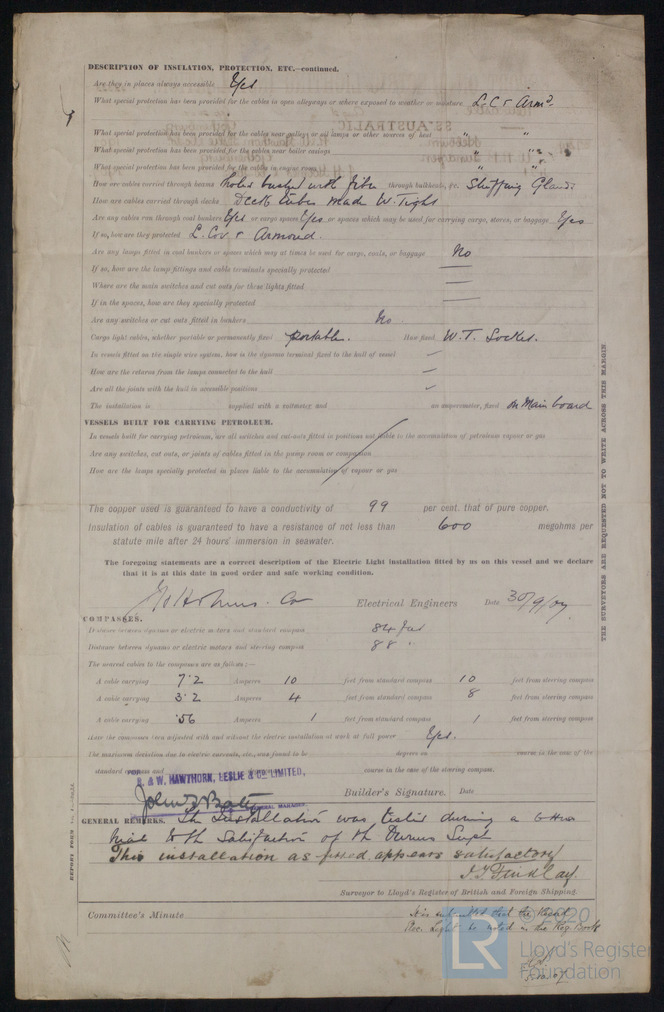 DESCRIPTION OF INSULATION, PROTECTION, ETC.—continued.
Are they in places always accessible Yes
What special protection has been provided for the cables in open alleyways or where exposed to weather or moisture L.C & Armd.
What special protection has been provided for the cables near galleys or oil lamps or other sources of heat " "
What special protection has been provided for the cables near boiler casings " "
What special protection has been provided for the cables in engine room " "
How are cables carried through beams holes bushed with fibre through bulkheads, &c. Stuffing Glands
How are cables carried through decks Deck tubes made W. Tight
Are any cables run through coal bunkers Yes or cargo spaces Yes or spaces which may be used for carrying cargo, stores, or baggage Yes
If so, how are they protected L. Cov & Armoured.
Are any lamps fitted in coal bunkers or spaces which may at times be used for cargo, coals, or baggage No
If so, how are the lamp fittings and cable terminals specially protected —
Where are the main switches and cut outs for these lights fitted —
If in the spaces, how are they specially protected —
Are any switches or cut outs fitted in bunkers No
Cargo light cables, whether portable or permanently fixed Portable. How fixed W. T. Socket.
In vessels fitted on the single wire system, how is the dynamo terminal fixed to the hull of vessel —
How are the returns from the lamps connected to the hull —
Are all the joints with the hull in accessible positions —
The installation is supplied with a voltmeter and an amperemeter, fixed on Main board
VESSELS BUILT FOR CARRYING PETROLEUM.
In vessels built for carrying petroleum, are all switches and cut-outs fitted in positions not liable to the accumulation of petroleum vapour or gas
Are any switches, cut outs, or joints of cables fitted in the pump room or companion
How are the lamps specially protected in places liable to the accumulation of vapour or gas
The copper used is guaranteed to have a conductivity of 99 per cent. that of pure copper.
Insulation of cables is guaranteed to have a resistance of not less than 600 megohms per
statute mile after 24 hours' immersion in seawater.
The foregoing statements are a correct description of the Electric Light installation fitted by us on this vessel and we declare
that it is at this date in good order and safe working condition.
J H Holmes & Co Electrical Engineers Date 30/9/07
COMPASSES.
Distance between dynamo or electric motors and standard compass 84 feet
Distance between dynamo or electric motors and steering compass 88 "
The nearest cables to the compasses are as follows:—
A cable carrying 7.2 Amperes 10 feet from standard compass 10 feet from steering compass
A cable carrying 3.2 Amperes 4 feet from standard compass 8 feet from steering compass
A cable carrying .56 Amperes 1 feet from standard compass 1 feet from steering compass
Have the compasses been adjusted with and without the electric installation at work at full power Yes.
The maximum deviation due to electric currents, etc., was found to be degrees on course in the case of the
standard compass and course in the case of the steering compass.
FOR
R. & W. HAWTHORN, LESLIE & CO. LIMITED,
Builder's Signature. Date
GENERAL MANAGER.
GENERAL REMARKS. The Installation was tested during a 6 Hour
trial to the Satisfaction of the Owners Supt
This installation as fitted appears satisfactory
J. T. Findlay.
Surveyor to Lloyd's Register of British and Foreign Shipping.
Committee's Minute
It is submitted that the Record
Elec. Light be noted in the Reg. Book
5.10.07
THE SURVEYORS ARE REQUESTED NOT TO WRITE ACROSS THIS MARGIN
SS AUSTRALIC
LR
© 2020
Lloyd's Register
Foundation